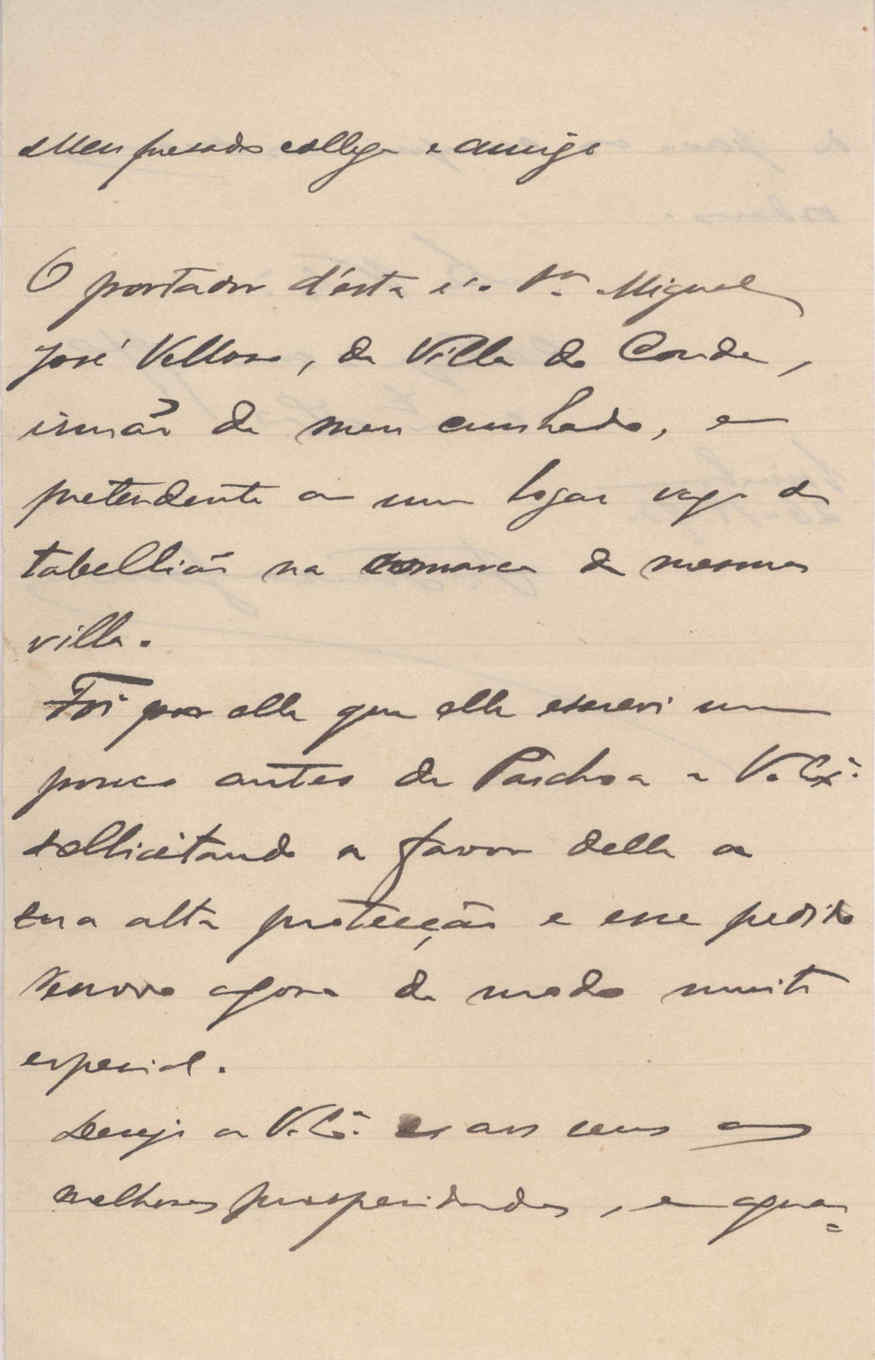 Meu presado collega e amigo
O portador d'esta é o Sr. Miguel
José Velloso, de Villa do Conde,
irmão de meu cunhado, e
pretendente a um logar vago de
tabellião na comarca da mesma
villa.
Foi por elle que elle escrevi um
pouco antes da Paschoa a V. Exª.
sollicitando a favor delle a
sua alta protecção e esse pedido
renovo agora de modo muito
especial.
Desejo a V. Exª. e aos seus as
melhores prosperidades, e aguar=